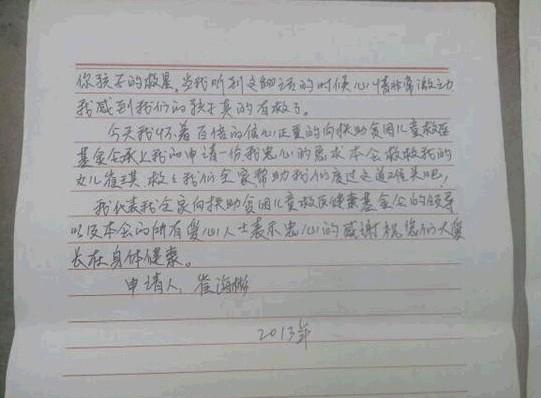 你孩子的救星,当我听到这句话的时候心情非常激动
我感到我们的孩子真的有救了。
今天我怀着百倍的信心正重的向扶助贫困儿童救医
基金会承上我的申请一份我忠心的恳求本会救救我的
女儿崔琪救救我们全家帮助我们度过这道难关吧!
我代表我全家向扶助贫困儿童救医健康基金会的领导
以及本会的所有爱心人士表示忠心的感谢祝您们大爱
长在身体健康。
申请人:崔海彬
2013年